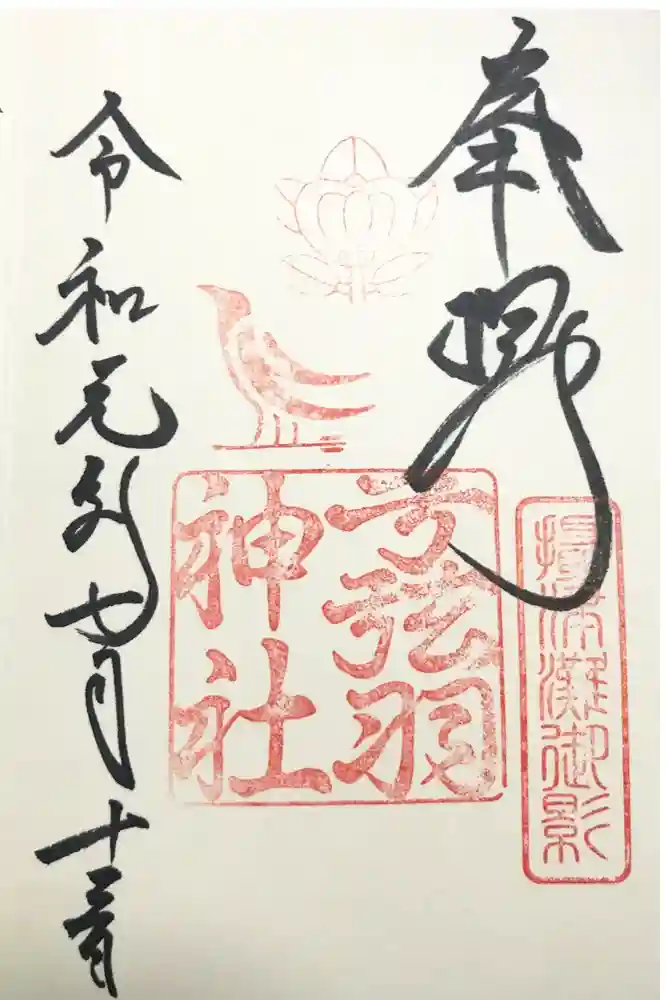 奉拝
攝津灘御影
弓弦羽
神社
令和元年七月十三日